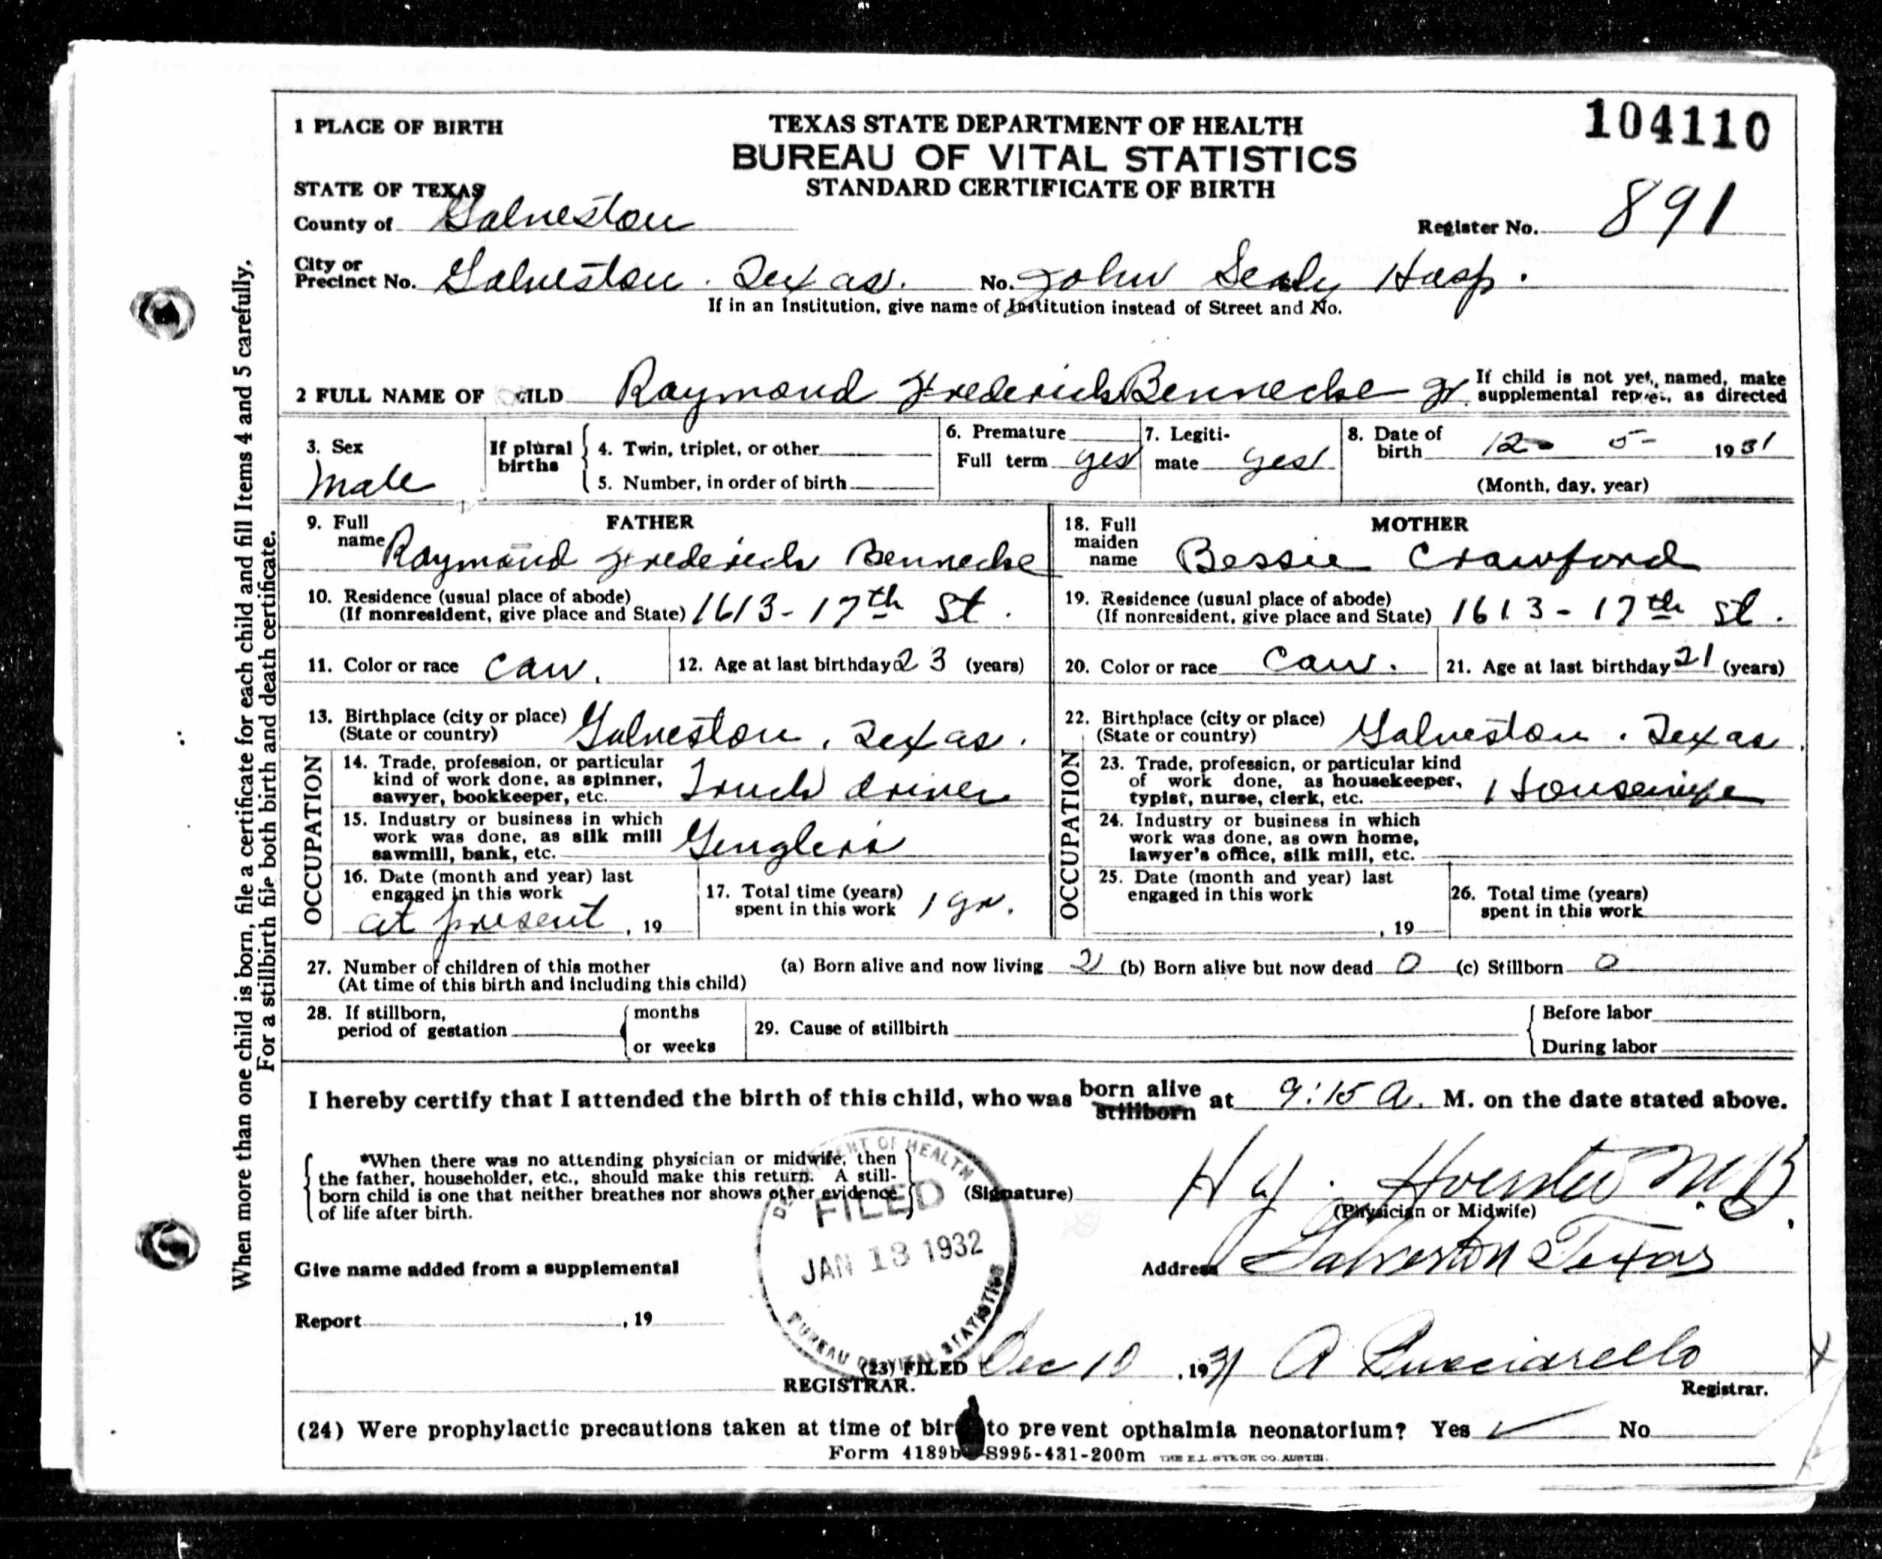 1 PLACE OF BIRTH
TEXAS STATE DEPARTMENT OF HEALTH
BUREAU OF VITAL STATISTICS
STANDARD CERTIFICATE OF BIRTH
104110
STATE OF TEXAS
County of Galveston
Register No. 891
City or Precinct No. Galveston. Texas. No. John Sealy Hosp.
If in an Institution, give name of Institution instead of Street and No.
2 FULL NAME OF CHILD Raymond Frederick Bennecke Jr. If child is not yet, named, make supplemental report, as directed
3. Sex Male
If plural births
4. Twin, triplet, or other
5. Number, in order of birth
6. Premature
Full term yes
7. Legitimate yes
8. Date of birth 12 - 5 - 1931
(Month, day, year)
FATHER
9. Full name Raymond Frederick Bennecke
10. Residence (usual place of abode)
(If nonresident, give place and State) 1613 - 17th St.
11. Color or race Cau. 12. Age at last birthday 23 (years)
13. Birthplace (city or place)
(State or country) Galveston, Texas.
OCCUPATION
14. Trade, profession, or particular
kind of work done, as spinner,
sawyer, bookkeeper, etc. Truck driver
15. Industry or business in which
work was done, as silk mill
sawmill, bank, etc. Gengler's
16. Date (month and year) last
engaged in this work
at present, 19
17. Total time (years)
spent in this work 1 yr.
MOTHER
18. Full maiden name Bessie Crawford
19. Residence (usual place of abode)
(If nonresident, give place and State) 1613 - 17th St.
20. Color or race Cau. 21. Age at last birthday 21 (years)
22. Birthplace (city or place)
(State or country) Galveston. Texas.
OCCUPATION
23. Trade, profession, or particular kind
of work done, as housekeeper,
typist, nurse, clerk, etc. Housewife
24. Industry or business in which
work was done, as own home,
lawyer's office, silk mill, etc.
25. Date (month and year) last
engaged in this work
, 19
26. Total time (years)
spent in this work
27. Number of children of this mother
(At time of this birth and including this child)
(a) Born alive and now living 2 (b) Born alive but now dead 0 (c) Stillborn 0
28. If stillborn,
period of gestation
months
or weeks
29. Cause of stillbirth
Before labor
During labor
I hereby certify that I attended the birth of this child, who was born alive stillborn at 9:15 A. M. on the date stated above.
*When there was no attending physician or midwife, then
the father, householder, etc., should make this return. A still-
born child is one that neither breathes nor shows other evidence
of life after birth.
(Signature) H
M.D.
(Physician or Midwife)
DEPARTMENT OF HEALTH
FILED
JAN 13 1932
BUREAU OF VITAL STATISTICS
Give name added from a supplemental
Address Galveston Texas
Report , 19
(23) FILED Dec 10, 1931 A Pucciarello
REGISTRAR.
Registrar.
(24) Were prophylactic precautions taken at time of birth to prevent opthalmia neonatorium? Yes ✓ No
Form 4189b S995-431-200m THE E.L. STECK CO. AUSTIN.
When more than one child is born, file a certificate for each child and fill Items 4 and 5 carefully.
For a stillbirth file both birth and death certificate.